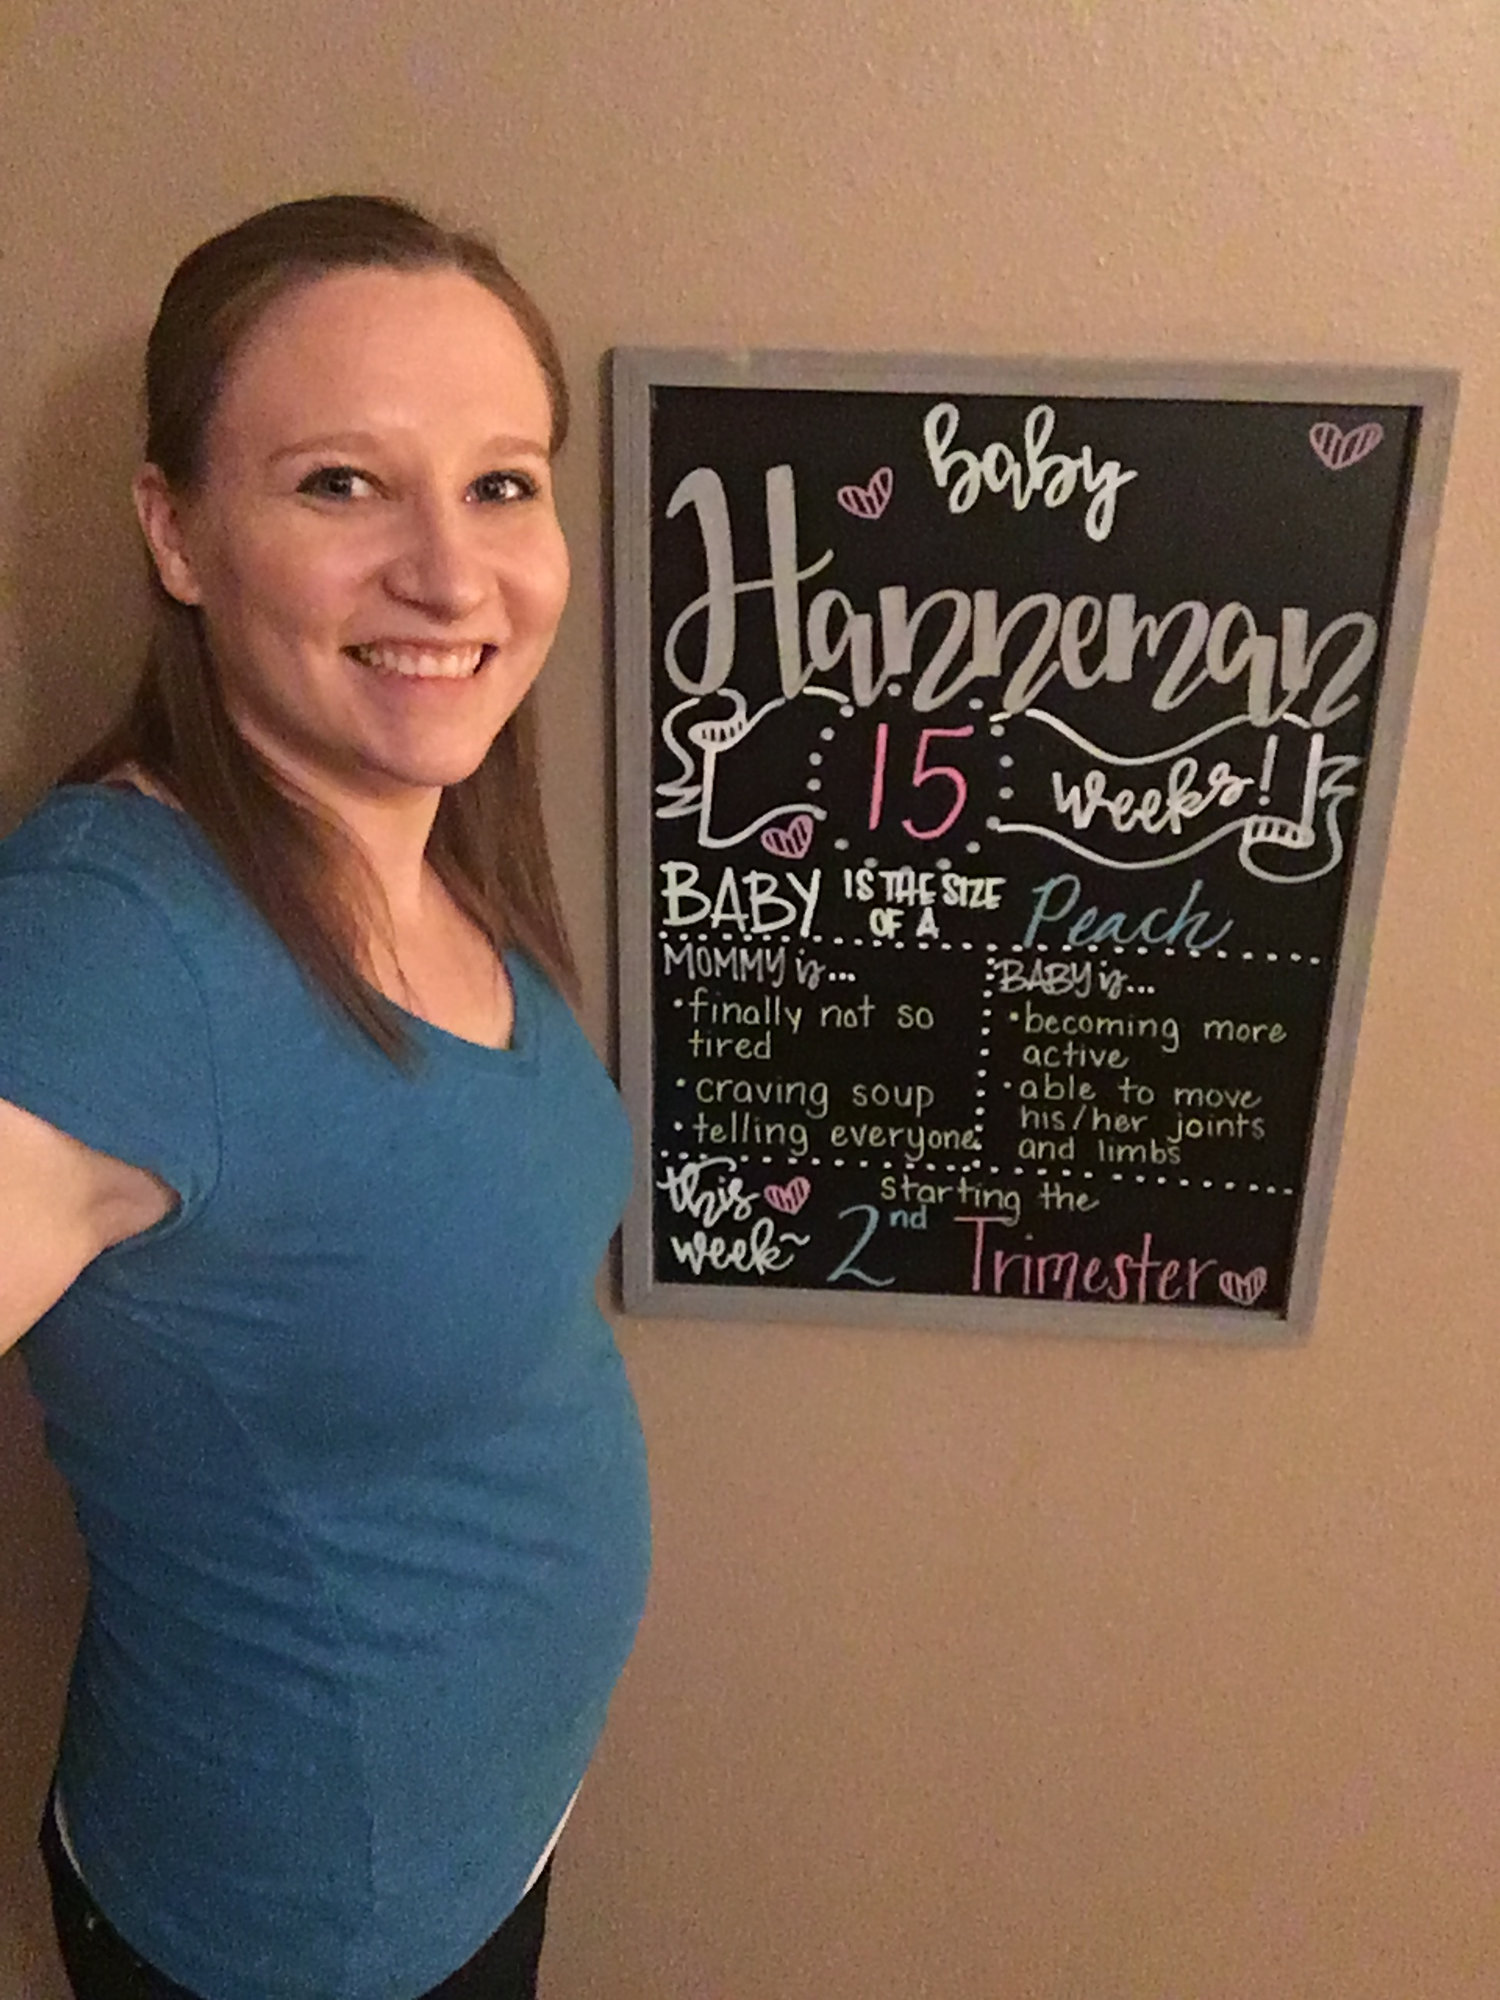 baby
Hanneman
15 weeks!
BABY IS THE SIZE
OF A Peach
MOMMY is...
• finally not so
tired
• craving soup
• telling everyone
BABY is...
• becoming more
active
• able to move
his/her joints
and limbs
this
week~
starting the
2nd Trimester